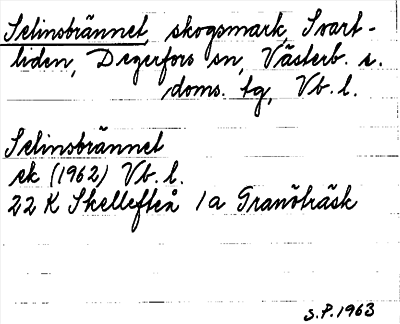 Selinsbrännet, skogsmark, Svart-
liden, Degerfors sn, Västerb. s.
doms. tg, Vb. l.
Selinsbrännet
ek (1962) Vb. l.
22 K Skellefteå 1a Granöträsk
S.P. 1963